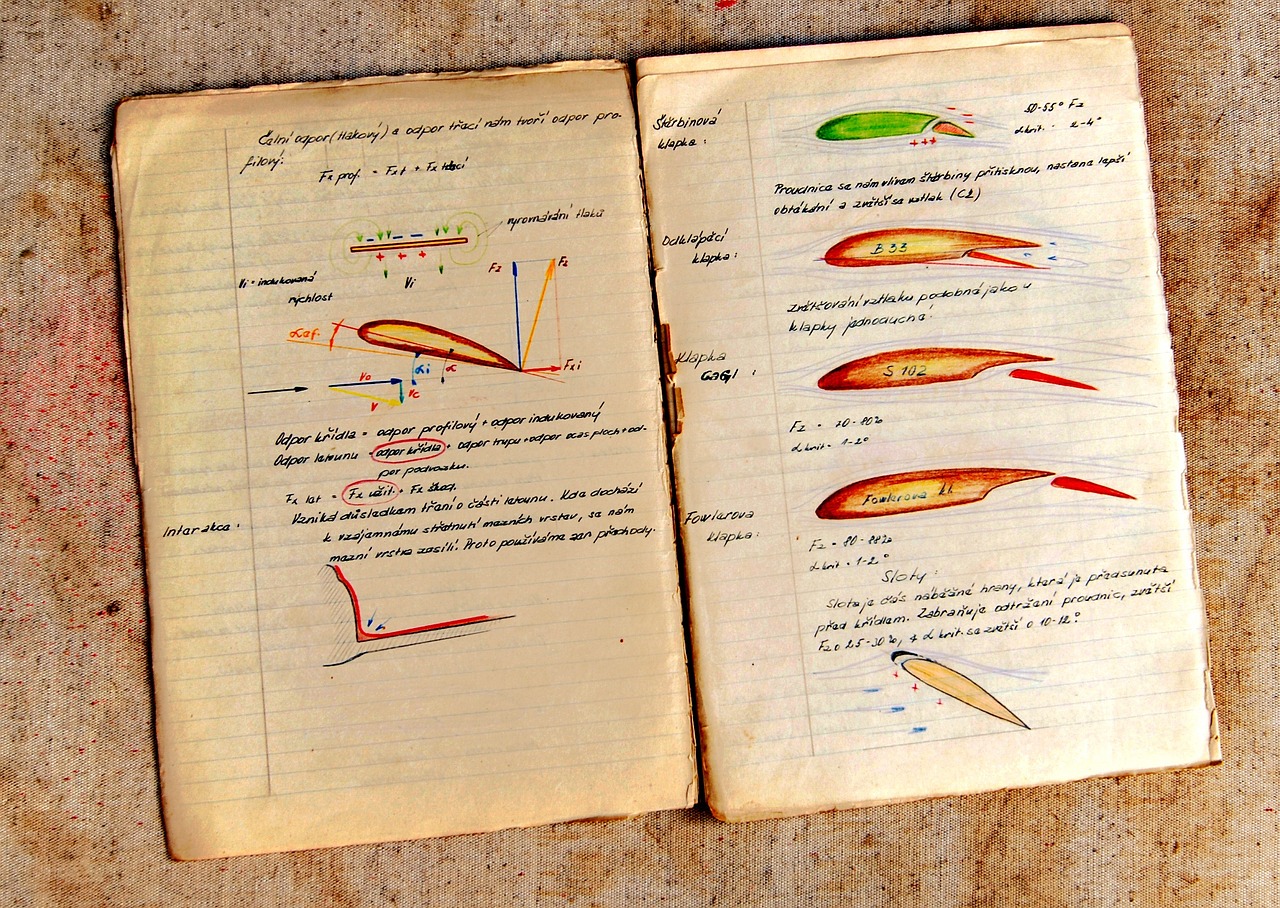 Čelní odpor (tlakový) a odpor třecí nám tvoří odpor pro-
filový:
Fx prof. = Fxt + Fx třecí
vyrovnávání tlaků
Vi = indukovaná
rychlost
Vi
Fz
Fz
αef.
αi
α
Fxi
Vo
Vc
V
Odpor křídla = odpor profilový + odpor indukovaný
Odpor letounu = odpor křídla + odpor trupu + odpor ocas ploch + od-
por podvozku.
Fx let = Fx užit. + Fx škod.
Interakce:
Vzniká důsledkem tření o části letounu. Kde dochází
k vzájemnému střetnutí mezních vrstev, se nám
mezní vrstva zesílí. Proto používáme zan přechody.
Štěrbinová
klapka:
50-55° Fz
α krit. 2-4°
Proudnice se nám vlivem štěrbiny přitisknou, nastane lepší
obtékání a zvětší se vztlak (Cz)
Odklápěcí
klapka:
B 33
zvětšování vztlaku podobné jako u
klapky jednoduché.
Klapka
GaGl :
S 102
Fz = 70-80%
α krit = 1-2°
Fowlerova
klapka:
Fowlerova kl.
Fz = 80-88%
α krit = 1-2°
Sloty:
Slot je část náběžné hrany, která je předsunuta
před křídlem. Zabraňuje odtržení proudnic, zvětší
Fz o 25-30%, α krit. se zvětší o 10-12°